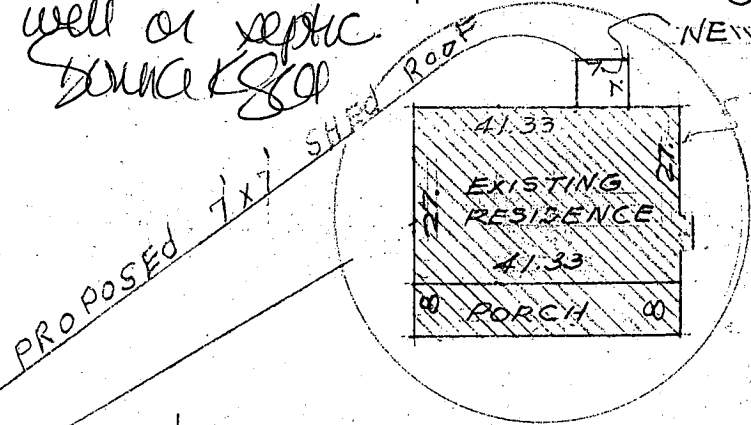 well or septic
NEW
PROPOSED 7'x7' SHED ROOF
7
7
41.33
27.
27.
EXISTING
RESIDENCE
41.33
8
PORCH
8